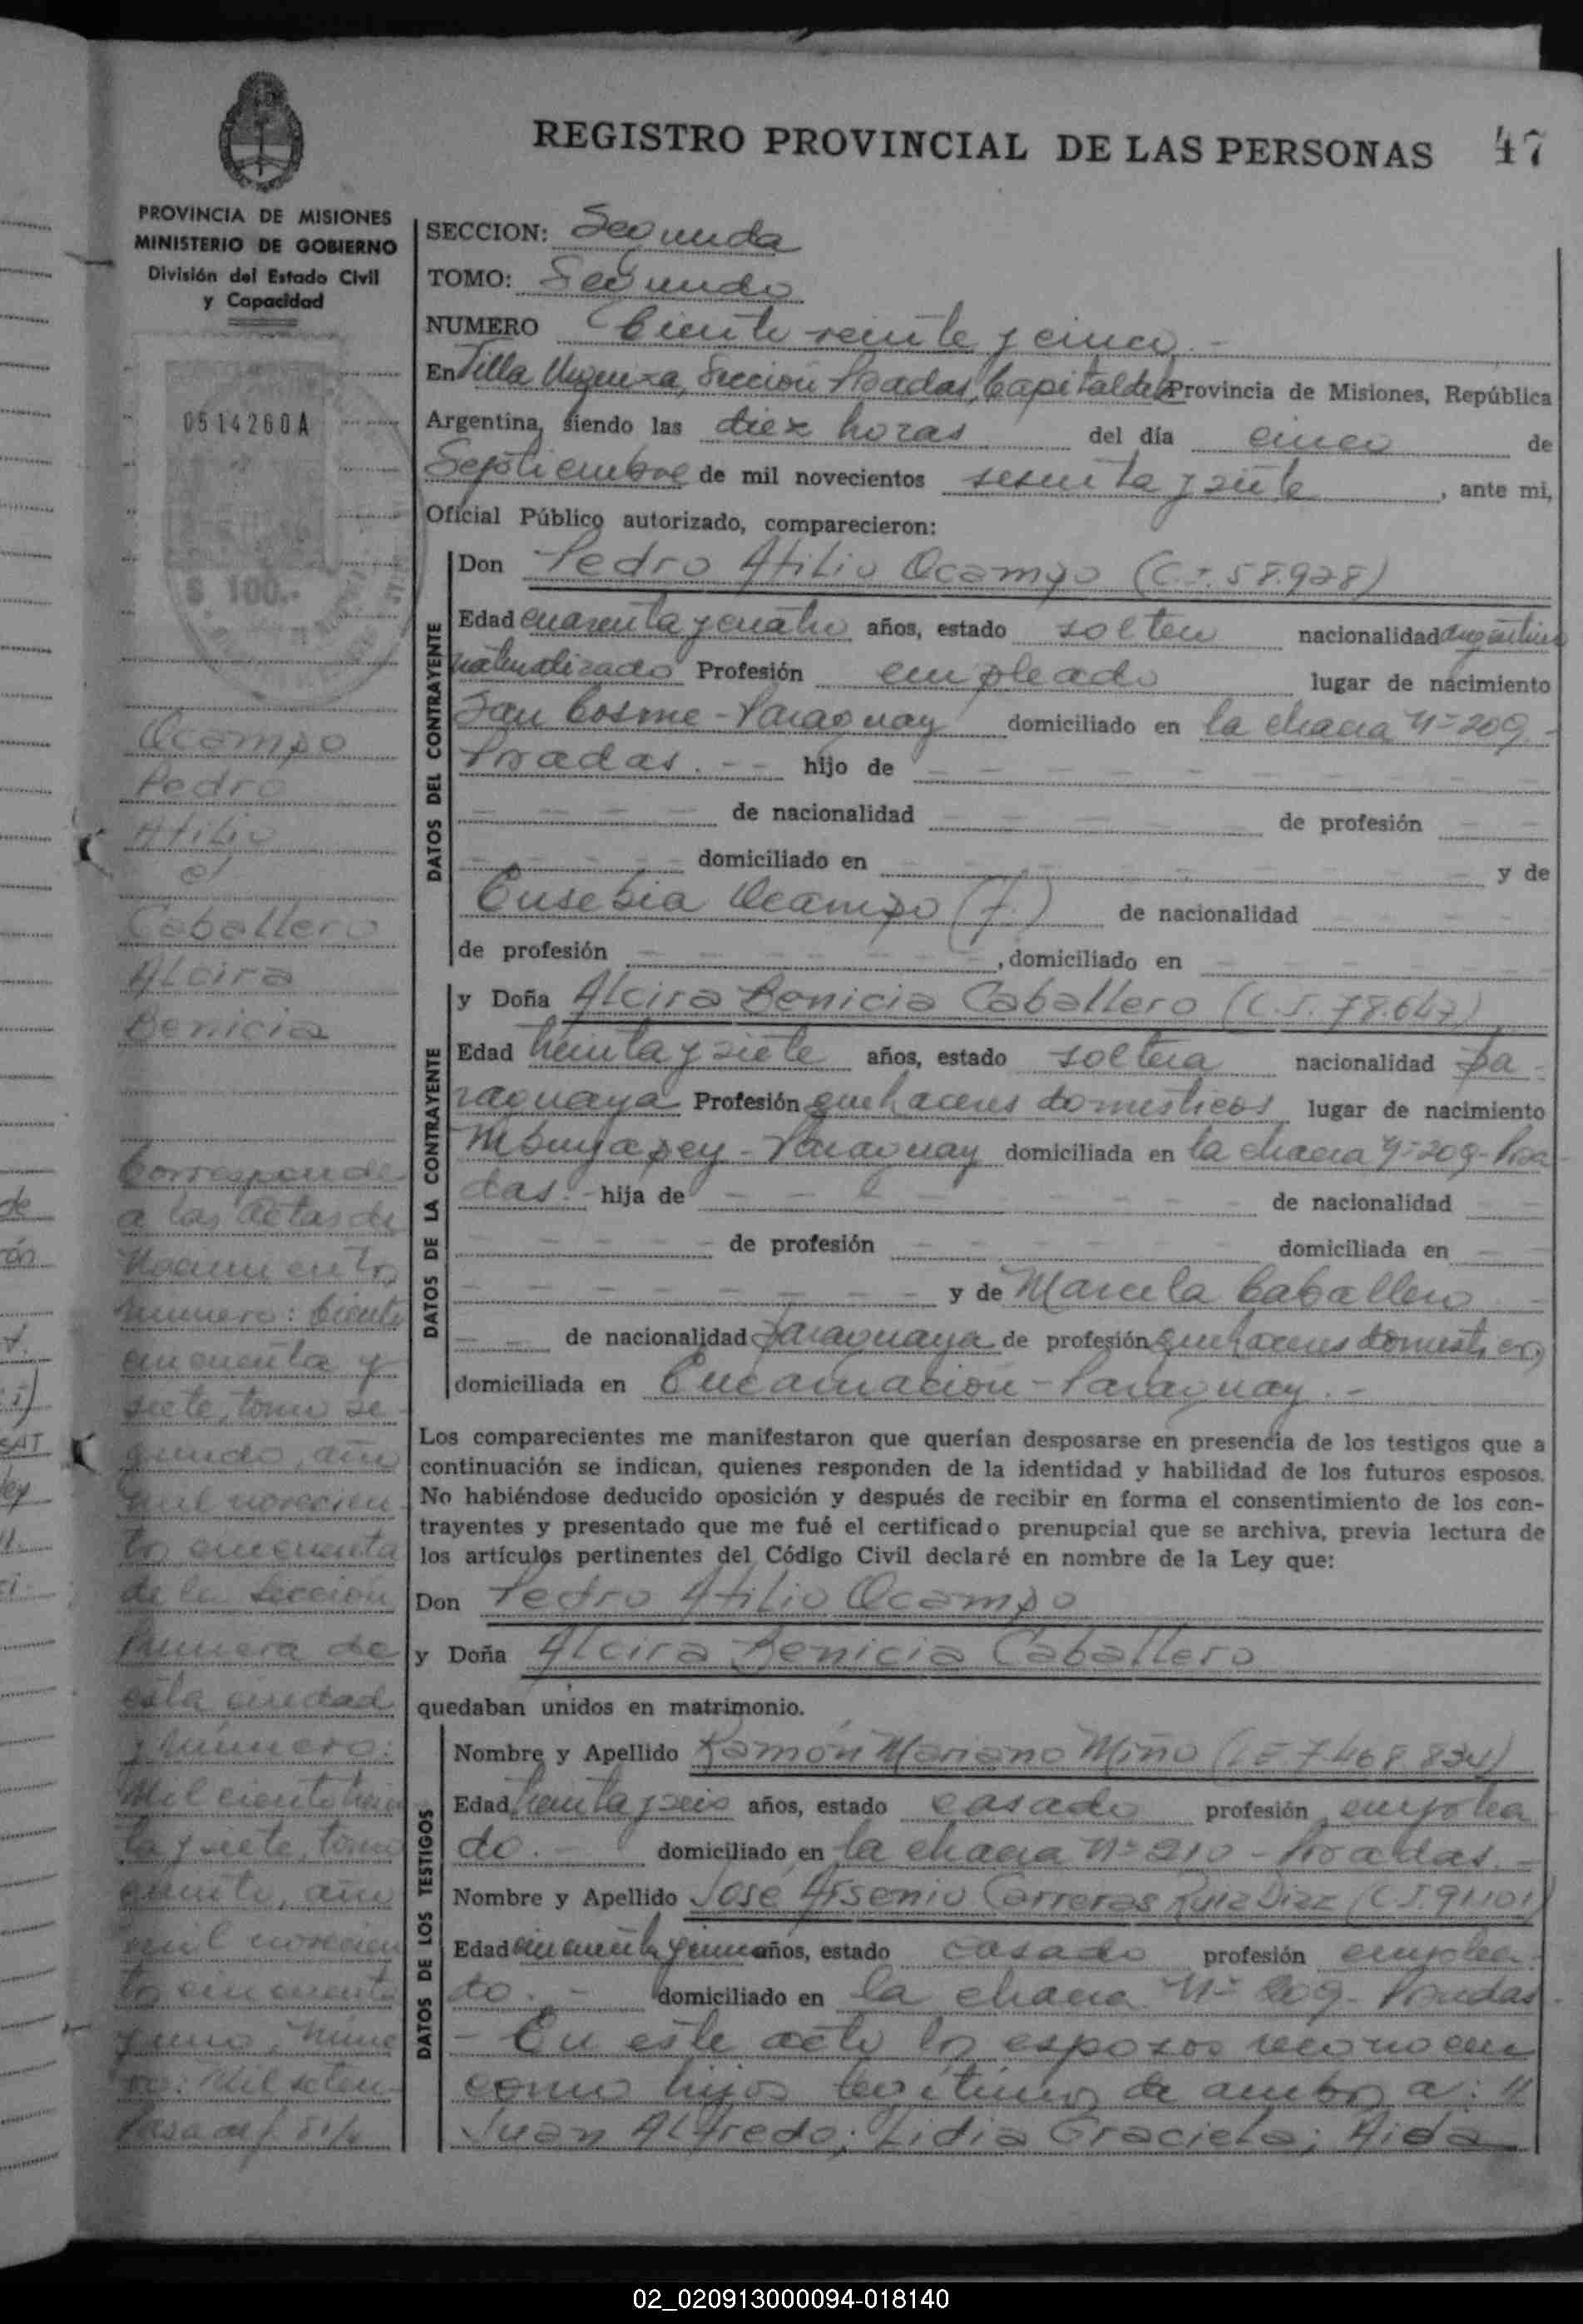 REGISTRO PROVINCIAL DE LAS PERSONAS 47
PROVINCIA DE MISIONES
MINISTERIO DE GOBIERNO
División del Estado Civil
y Capacidad
0514260A
$ 100.-
Ocampo
Pedro
Atilio
c/
Caballero
Alcira
Benicia
Corresponde
a las actas de
Nacimiento
número: Ciento
cincuenta y
siete, tomo se
gundo, año
mil novecien
tos cincuenta
de la Sección
Primera de
esta ciudad
y Número:
Mil ciento trein
ta y siete, tomo
año
mil novecien
tos cincuenta
y uno, núme
ro: Mil seten
Pasa al f. 51/
SECCION: Segunda
TOMO: Segundo
NUMERO Ciento veinte y cinco.-
En Villa Urquiza, Sección Posadas, Capital de la Provincia de Misiones, República
Argentina, siendo las diez horas del día cinco de
Septiembre de mil novecientos sesenta y siete, ante mi,
Oficial Público autorizado, comparecieron:
DATOS DEL CONTRAYENTE
Don Pedro Atilio Ocampo (C.I. 58.928)
Edad cuarenta y cuatro años, estado soltero nacionalidad argentino
naturalizado Profesión empleado lugar de nacimiento
San Cosme - Paraguay domiciliado en la chacra Nº 209.-
Posadas.-- hijo de
de nacionalidad de profesión
domiciliado en y de
Eusebia Ocampo (f.) de nacionalidad
de profesión , domiciliado en
DATOS DE LA CONTRAYENTE
y Doña Alcira Benicia Caballero (C.I. 78.647)
Edad treinta y siete años, estado soltera nacionalidad pa-
raguaya Profesión quehaceres domésticos lugar de nacimiento
Mbuyapey - Paraguay domiciliada en la chacra Nº 209 - Posa-
das.- hija de de nacionalidad
de profesión domiciliada en
y de Marcela Caballero
de nacionalidad paraguaya de profesión quehaceres domésticos,
domiciliada en Encarnación - Paraguay.-
Los comparecientes me manifestaron que querían desposarse en presencia de los testigos que a
continuación se indican, quienes responden de la identidad y habilidad de los futuros esposos.
No habiéndose deducido oposición y después de recibir en forma el consentimiento de los con-
trayentes y presentado que me fué el certificado prenupcial que se archiva, previa lectura de
los artículos pertinentes del Código Civil declaré en nombre de la Ley que:
Don Pedro Atilio Ocampo
y Doña Alcira Benicia Caballero
quedaban unidos en matrimonio.
DATOS DE LOS TESTIGOS
Nombre y Apellido Ramón Mariano Miño (L E 7.468.834)
Edad treinta y seis años, estado casado profesión emplea
do.- domiciliado en la chacra Nº 210 - Posadas.-
Nombre y Apellido José Arsenio Carreras Ruiz Diaz (C.I. 91.101)
Edad cincuenta y cinco años, estado casado profesión emplea-
do.- domiciliado en la chacra Nº 209 - Posadas.
- En este acto los esposos reconocen
como hijos legítimos de ambos a: //
Juan Alfredo; Lidia Graciela; Aida
02_020913000094-018140